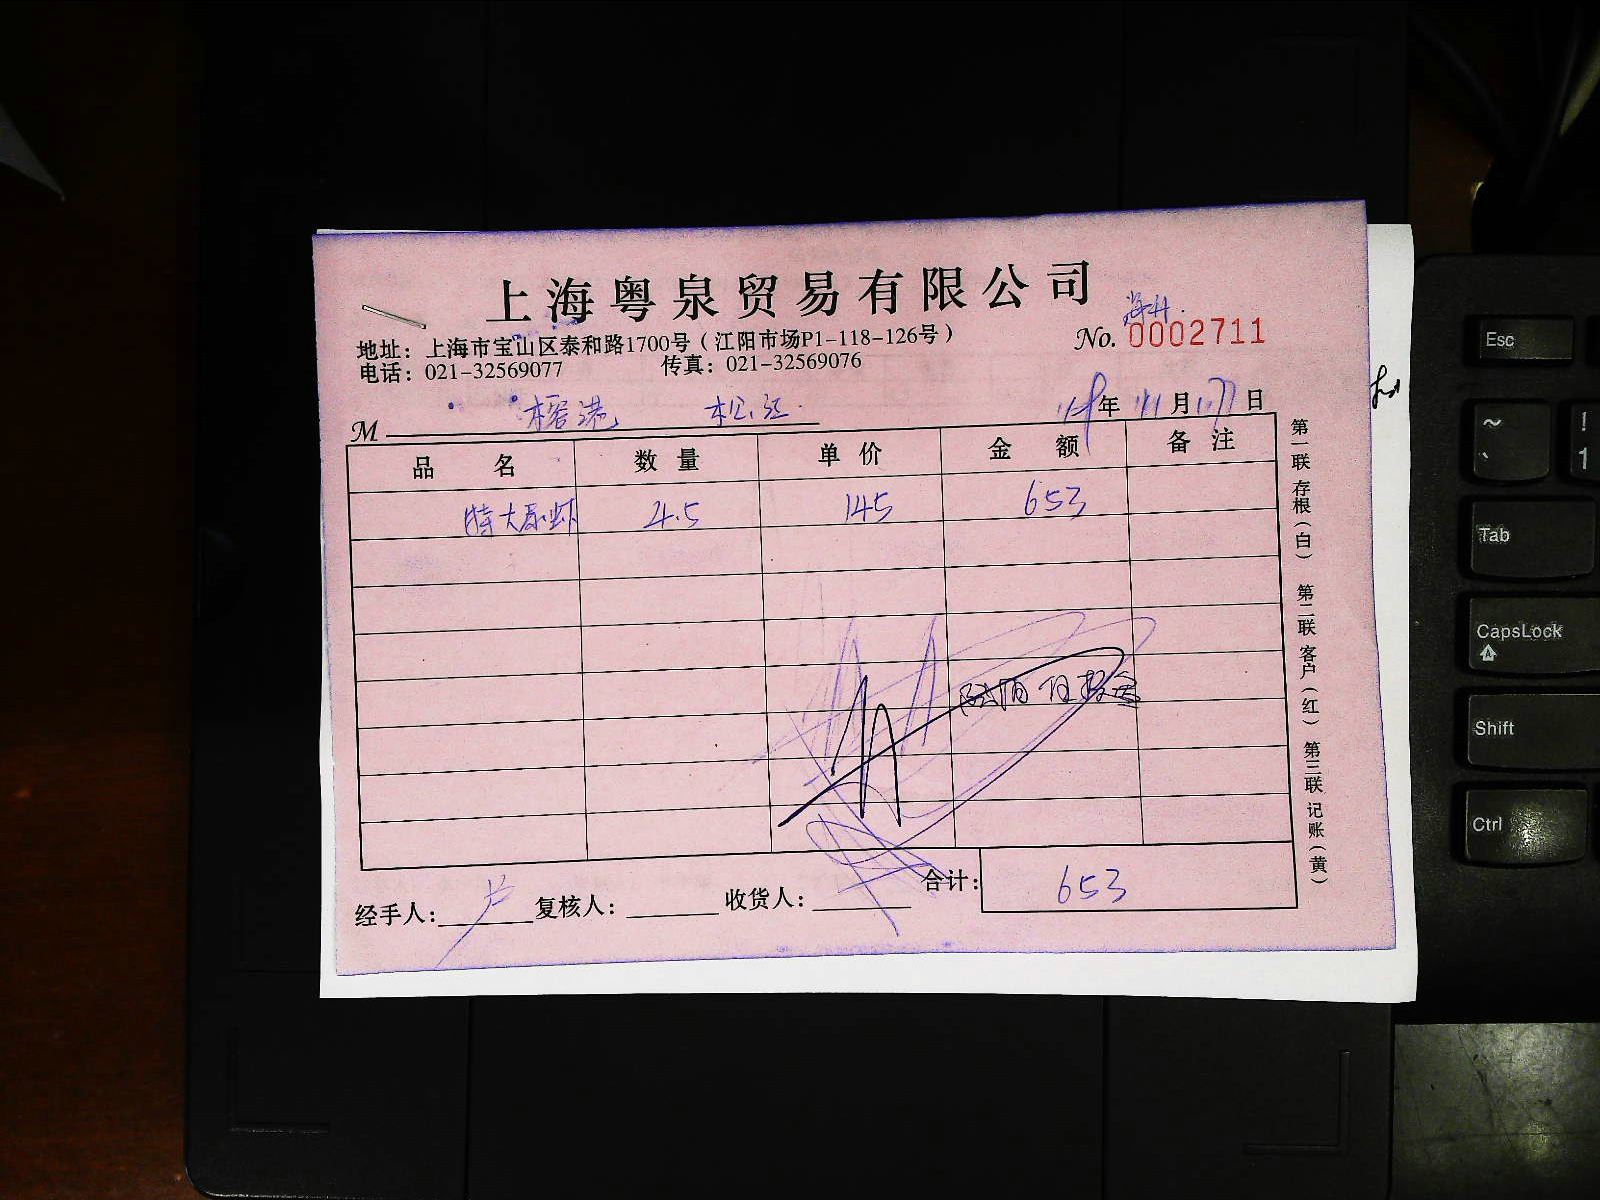 上海粤泉贸易有限公司
地址：上海市宝山区泰和路1700号（江阳市场P1-118-126号）
No. 0002711
电话：021-32569077 传真：021-32569076
M 榕港 松江 年 月 日
品名 数量 单价 金额 备注
特大 虾 4.5 145 653
合计： 653
经手人： 卢 复核人： 收货人：
第一联 存根（白） 第二联 客户（红） 第三联 记账（黄）
Esc
~ !
` 1
Tab
CapsLock
A
Shift
Ctrl